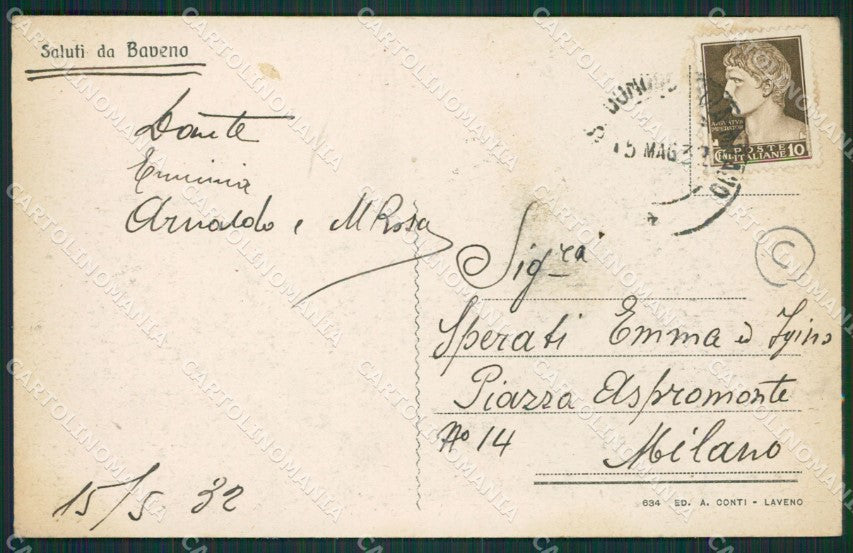 Saluti da Baveno
Dante
Erminia
Arnaldo e M Rosa
15/5 32
15 MAG 32
POSTE
ITALIANE
CENT. 10
C
Sig.ra
Sperati Emma ed Igino
Piazza Aspromonte
No 14
Milano
634 ED. A. CONTI - LAVENO
CARTOLINOMANIA